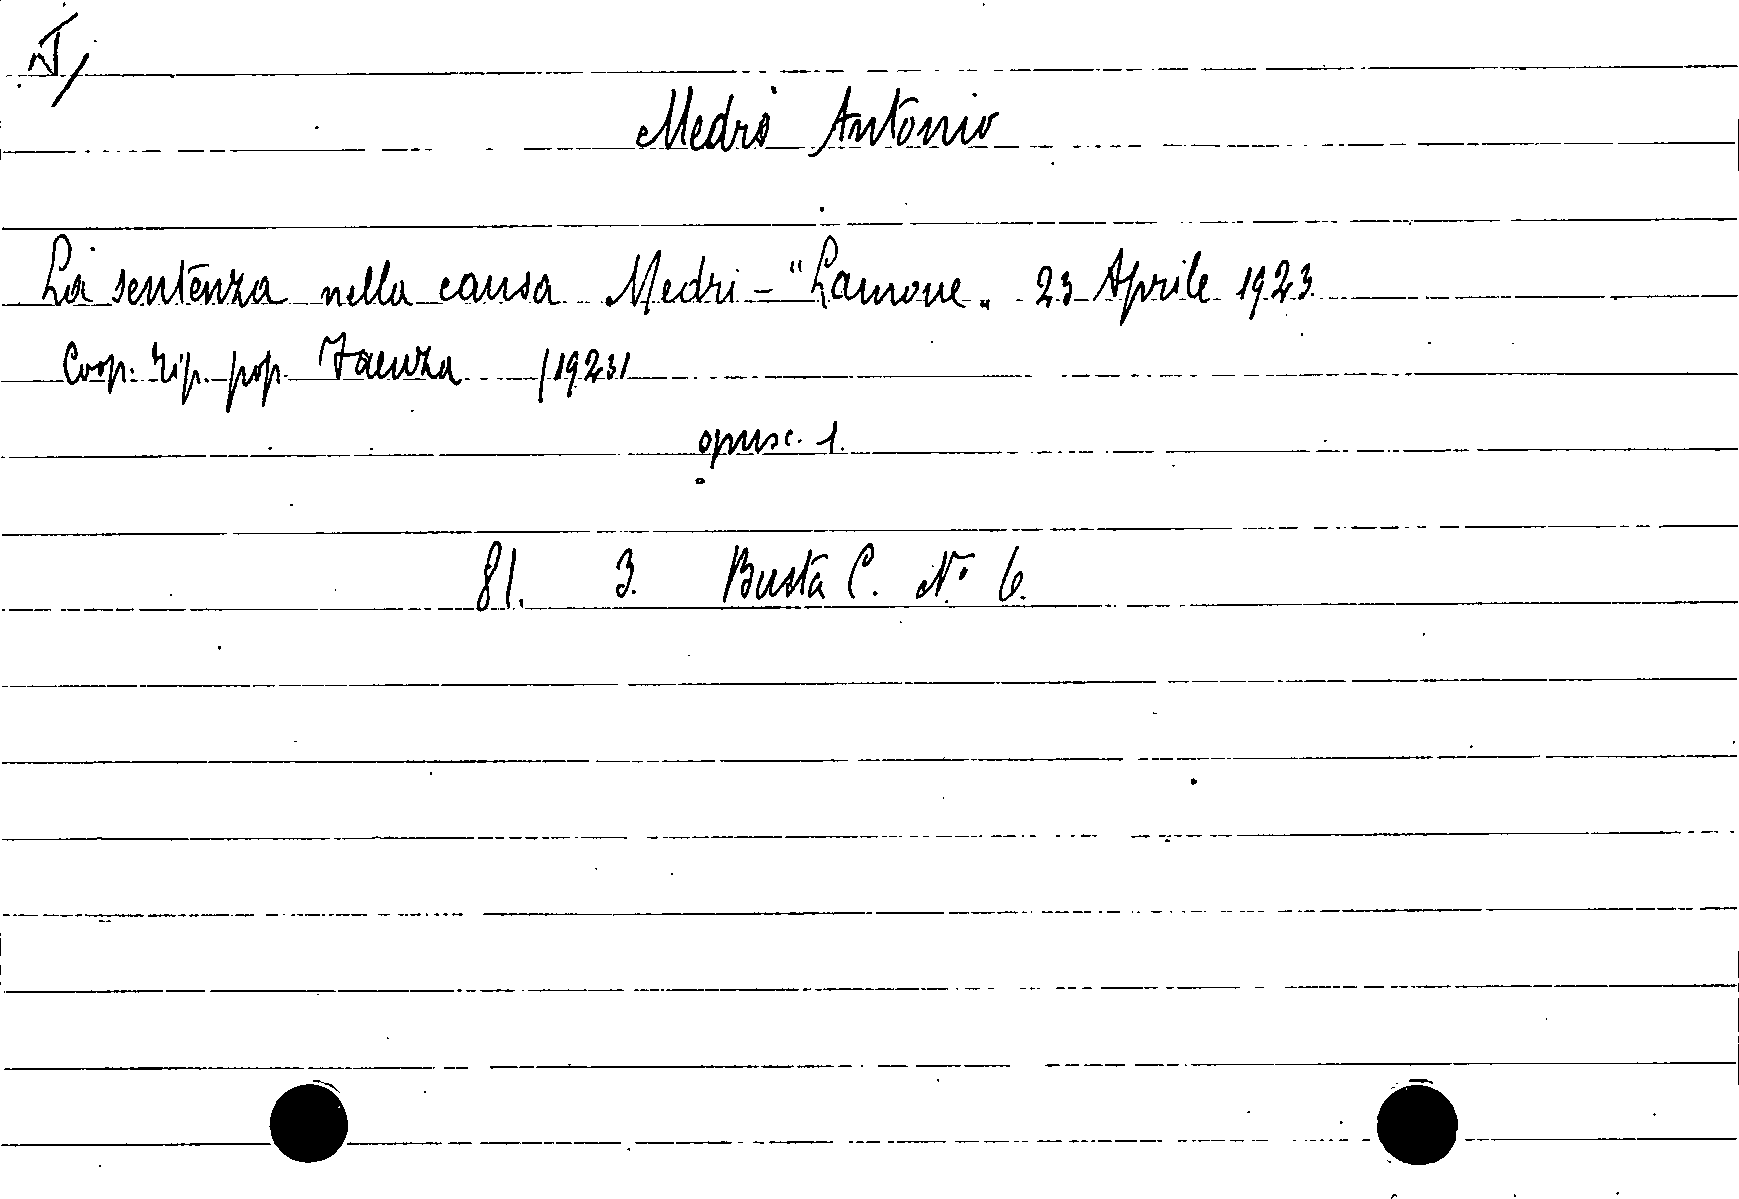 Medri Antonio
La sentenza nella causa Medri - "Lamone„ 23 Aprile 1923
Coop. tip. pop. Faenza /1923/
opusc. 1.
81. 3. Busta C. N.° 6.